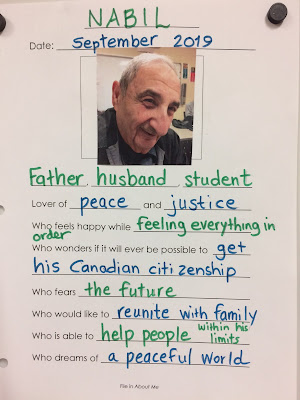 NABIL
Date: September 2019
Father husband student
Lover of peace and justice
Who feels happy while feeling everything in
order
Who wonders if it will ever be possible to get
his Canadian citizenship
Who fears the future
Who would like to reunite with family
Who is able to help people within his
limits
Who dreams of a peaceful world
Fill in About Me